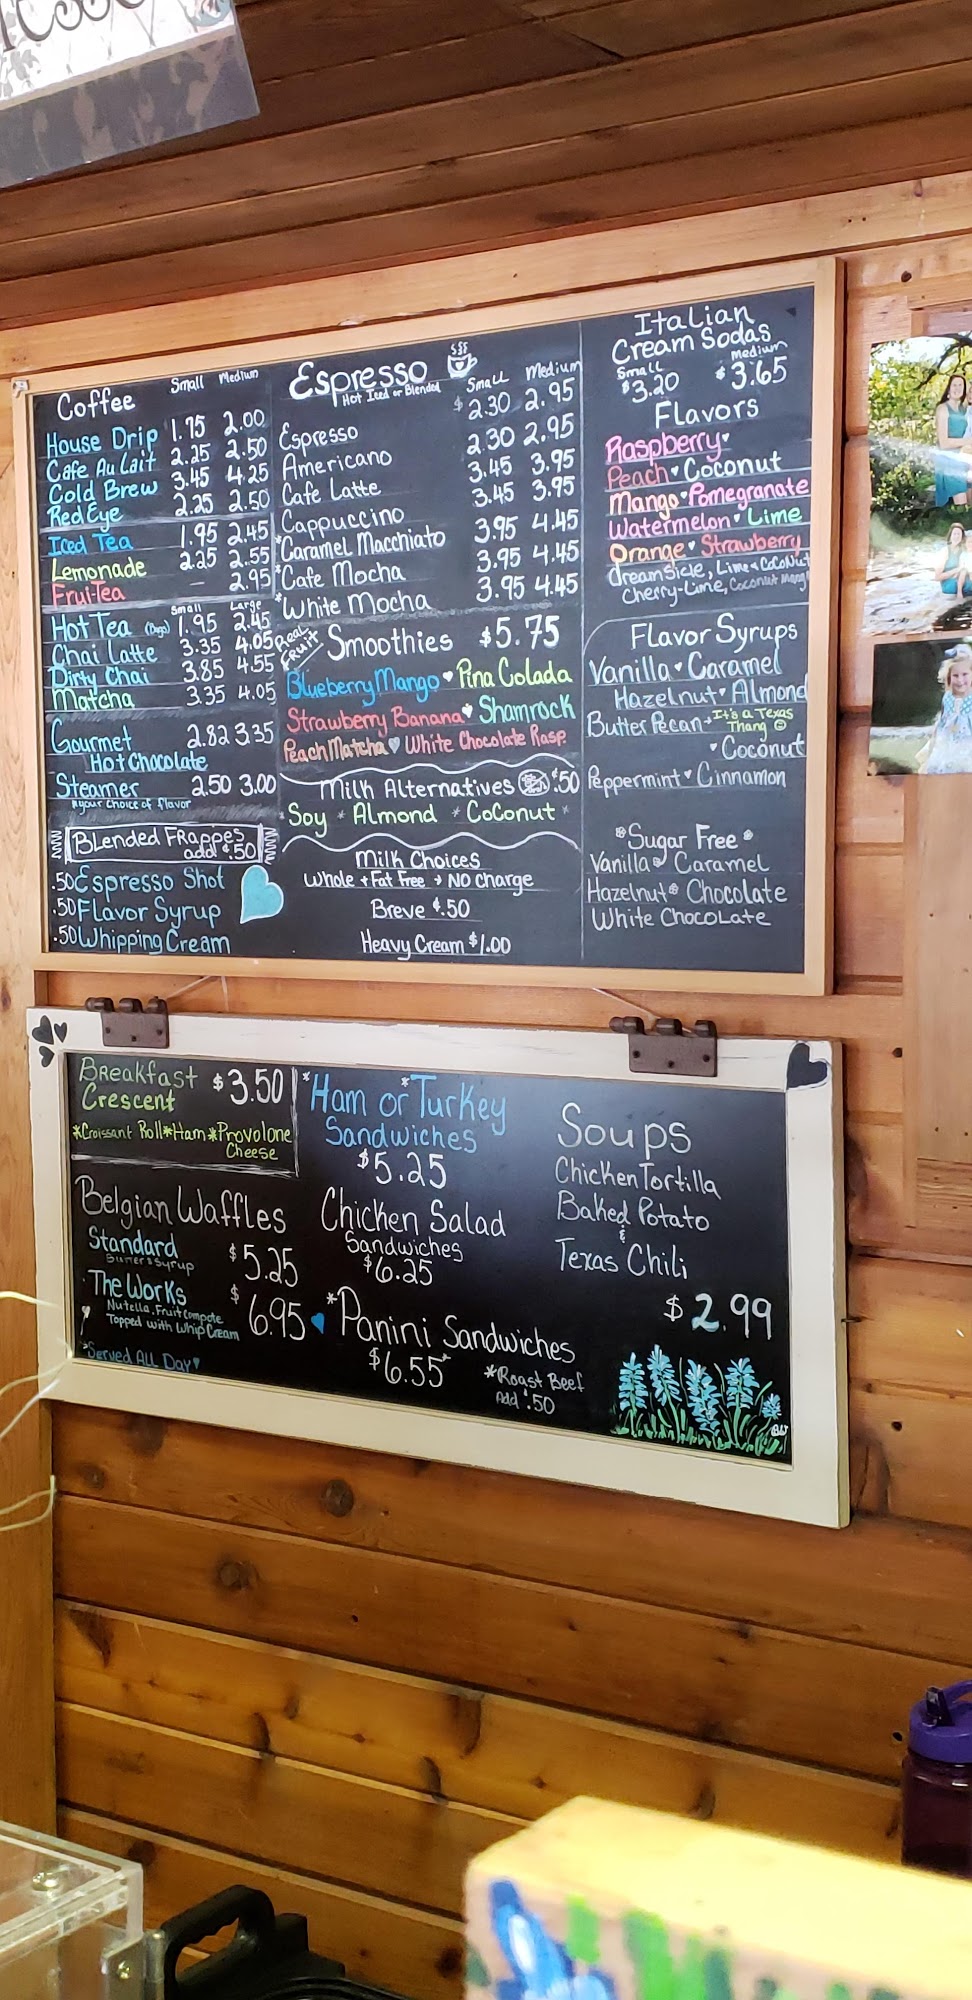 Coffee
Small Medium
House Drip 1.75 2.00
Cafe Au Lait 2.25 2.50
Cold Brew 3.45 4.25
Red Eye 2.25 2.50
Iced Tea 1.95 2.45
Lemonade 2.25 2.55
Frui-Tea — 2.95
Small Large
Hot Tea (Bags) 1.95 2.45
Chai Latte 3.35 4.05
Dirty Chai 3.85 4.55
Matcha 3.35 4.05
Gourmet 2.82 3.35
Hot Chocolate
Steamer 2.50 3.00
*your choice of flavor
Blended Frappes
add $.50
.50 Espresso Shot
.50 Flavor Syrup
.50 Whipping Cream
Espresso
Hot Iced or Blended
Small Medium
Espresso $2.30 2.95
Americano 2.30 2.95
Cafe Latte 3.45 3.95
Cappuccino 3.45 3.95
*Caramel Macchiato 3.95 4.45
*Cafe Mocha 3.95 4.45
*White Mocha 3.95 4.45
Real Fruit
Smoothies $5.75
Blueberry Mango ♥ Pina Colada
Strawberry Banana ♥ Shamrock
Peach Matcha ♥ White Chocolate Rasp
Milk Alternatives $.50
Soy * Almond * Coconut
Milk Choices
Whole + Fat Free → NO Charge
Breve $.50
Heavy Cream $1.00
Italian
Cream Sodas
Small Medium
$3.20 $3.65
Flavors
Raspberry ♥
Peach ♥ Coconut
Mango ♥ Pomegranate
Watermelon ♥ Lime
Orange ♥ Strawberry
Dreamsicle, Lime & CocoNut
Cherry-Lime, Coconut Mango
Flavor Syrups
Vanilla ♥ Caramel
Hazelnut ♥ Almond
Butter Pecan → It's a Texas
Thang ☺
♥ Coconut
Peppermint ♥ Cinnamon
*Sugar Free*
Vanilla Caramel
Hazelnut Chocolate
White Chocolate
Breakfast $3.50
Crescent
*Croissant Roll *Ham *Provolone
Cheese
Belgian Waffles
Standard $5.25
Butter & Syrup
The Works $6.95
Nutella, Fruit Compote
Topped with Whip Cream
*Served All Day ♥
*Ham or *Turkey
Sandwiches
$5.25
Chicken Salad
Sandwiches
$6.25
*Panini Sandwiches
$6.55
*Roast Beef
Add $.50
Soups
Chicken Tortilla
Baked Potato
&
Texas Chili
$2.99